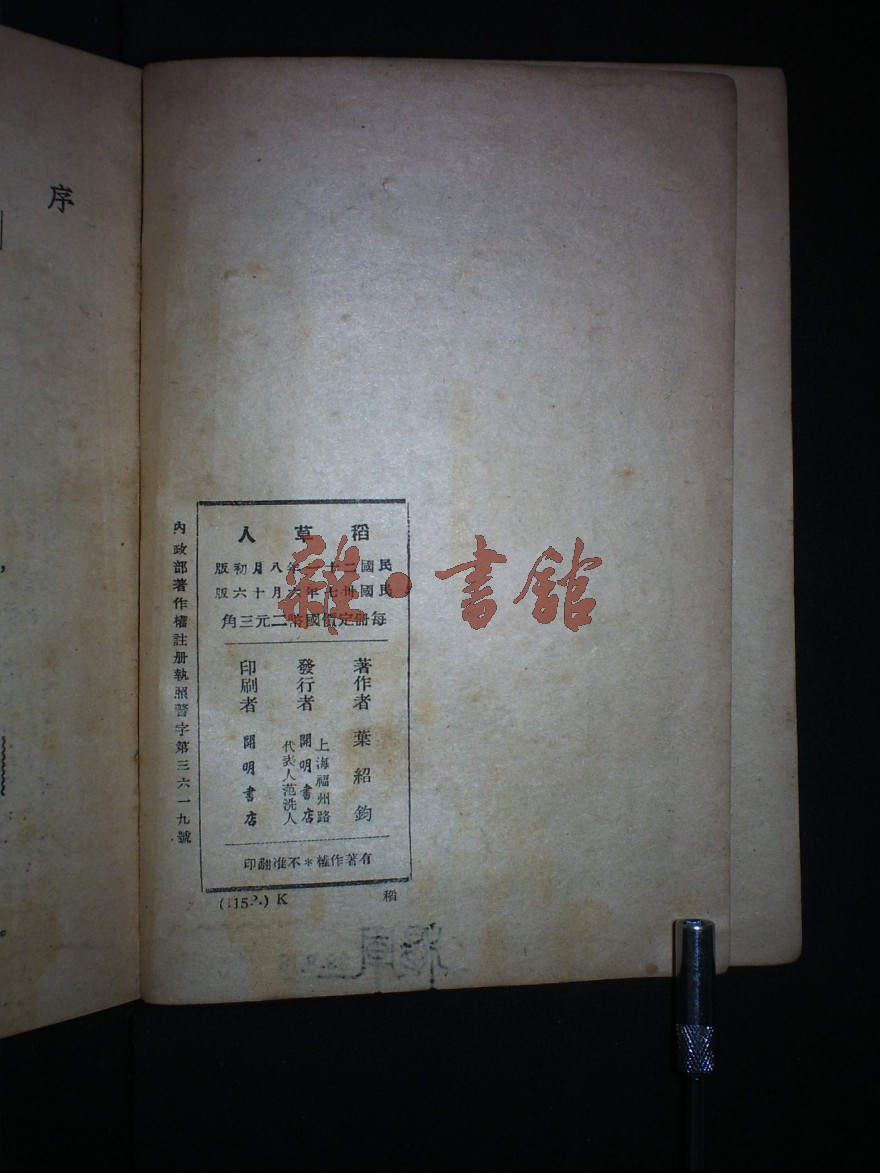 序
稻草人
民國二十一年八月初版
民國卅七年六月十六版
每冊定價國幣二元三角
著作者 葉紹鈞
發行者
上海福州路
開明書店
代表人范洗人
印刷者 開明書店
有著作權＊不准翻印
K 稻
內政部著作權註册執照警字第三六一九號
雜·書館